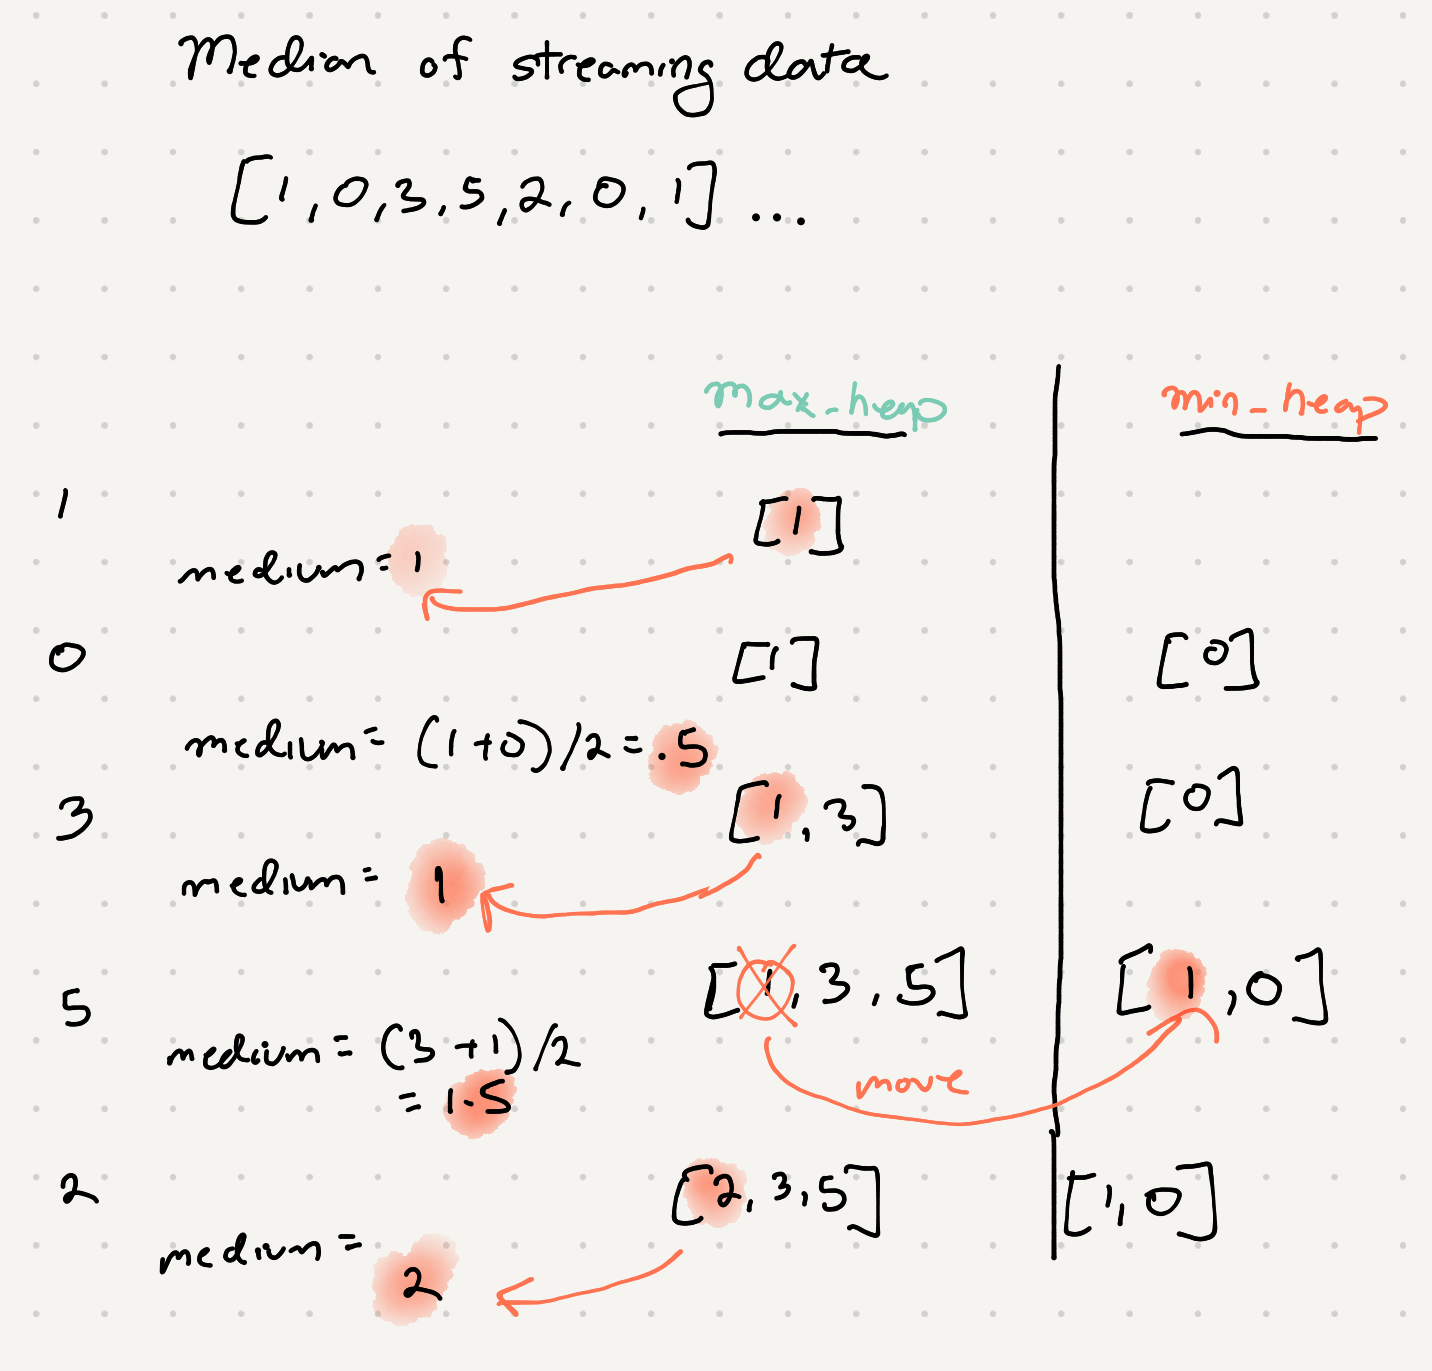 Median of streaming data
[1, 0, 3, 5, 2, 0, 1] ...
max_heap min_heap
1 [1]
medium = 1
0 [1] [0]
medium = (1+0)/2 = .5
3 [1, 3] [0]
medium = 1
5 [1, 3, 5] [1, 0]
medium = (3+1)/2
= 1.5
move
2 [2, 3, 5] [1, 0]
medium =
2